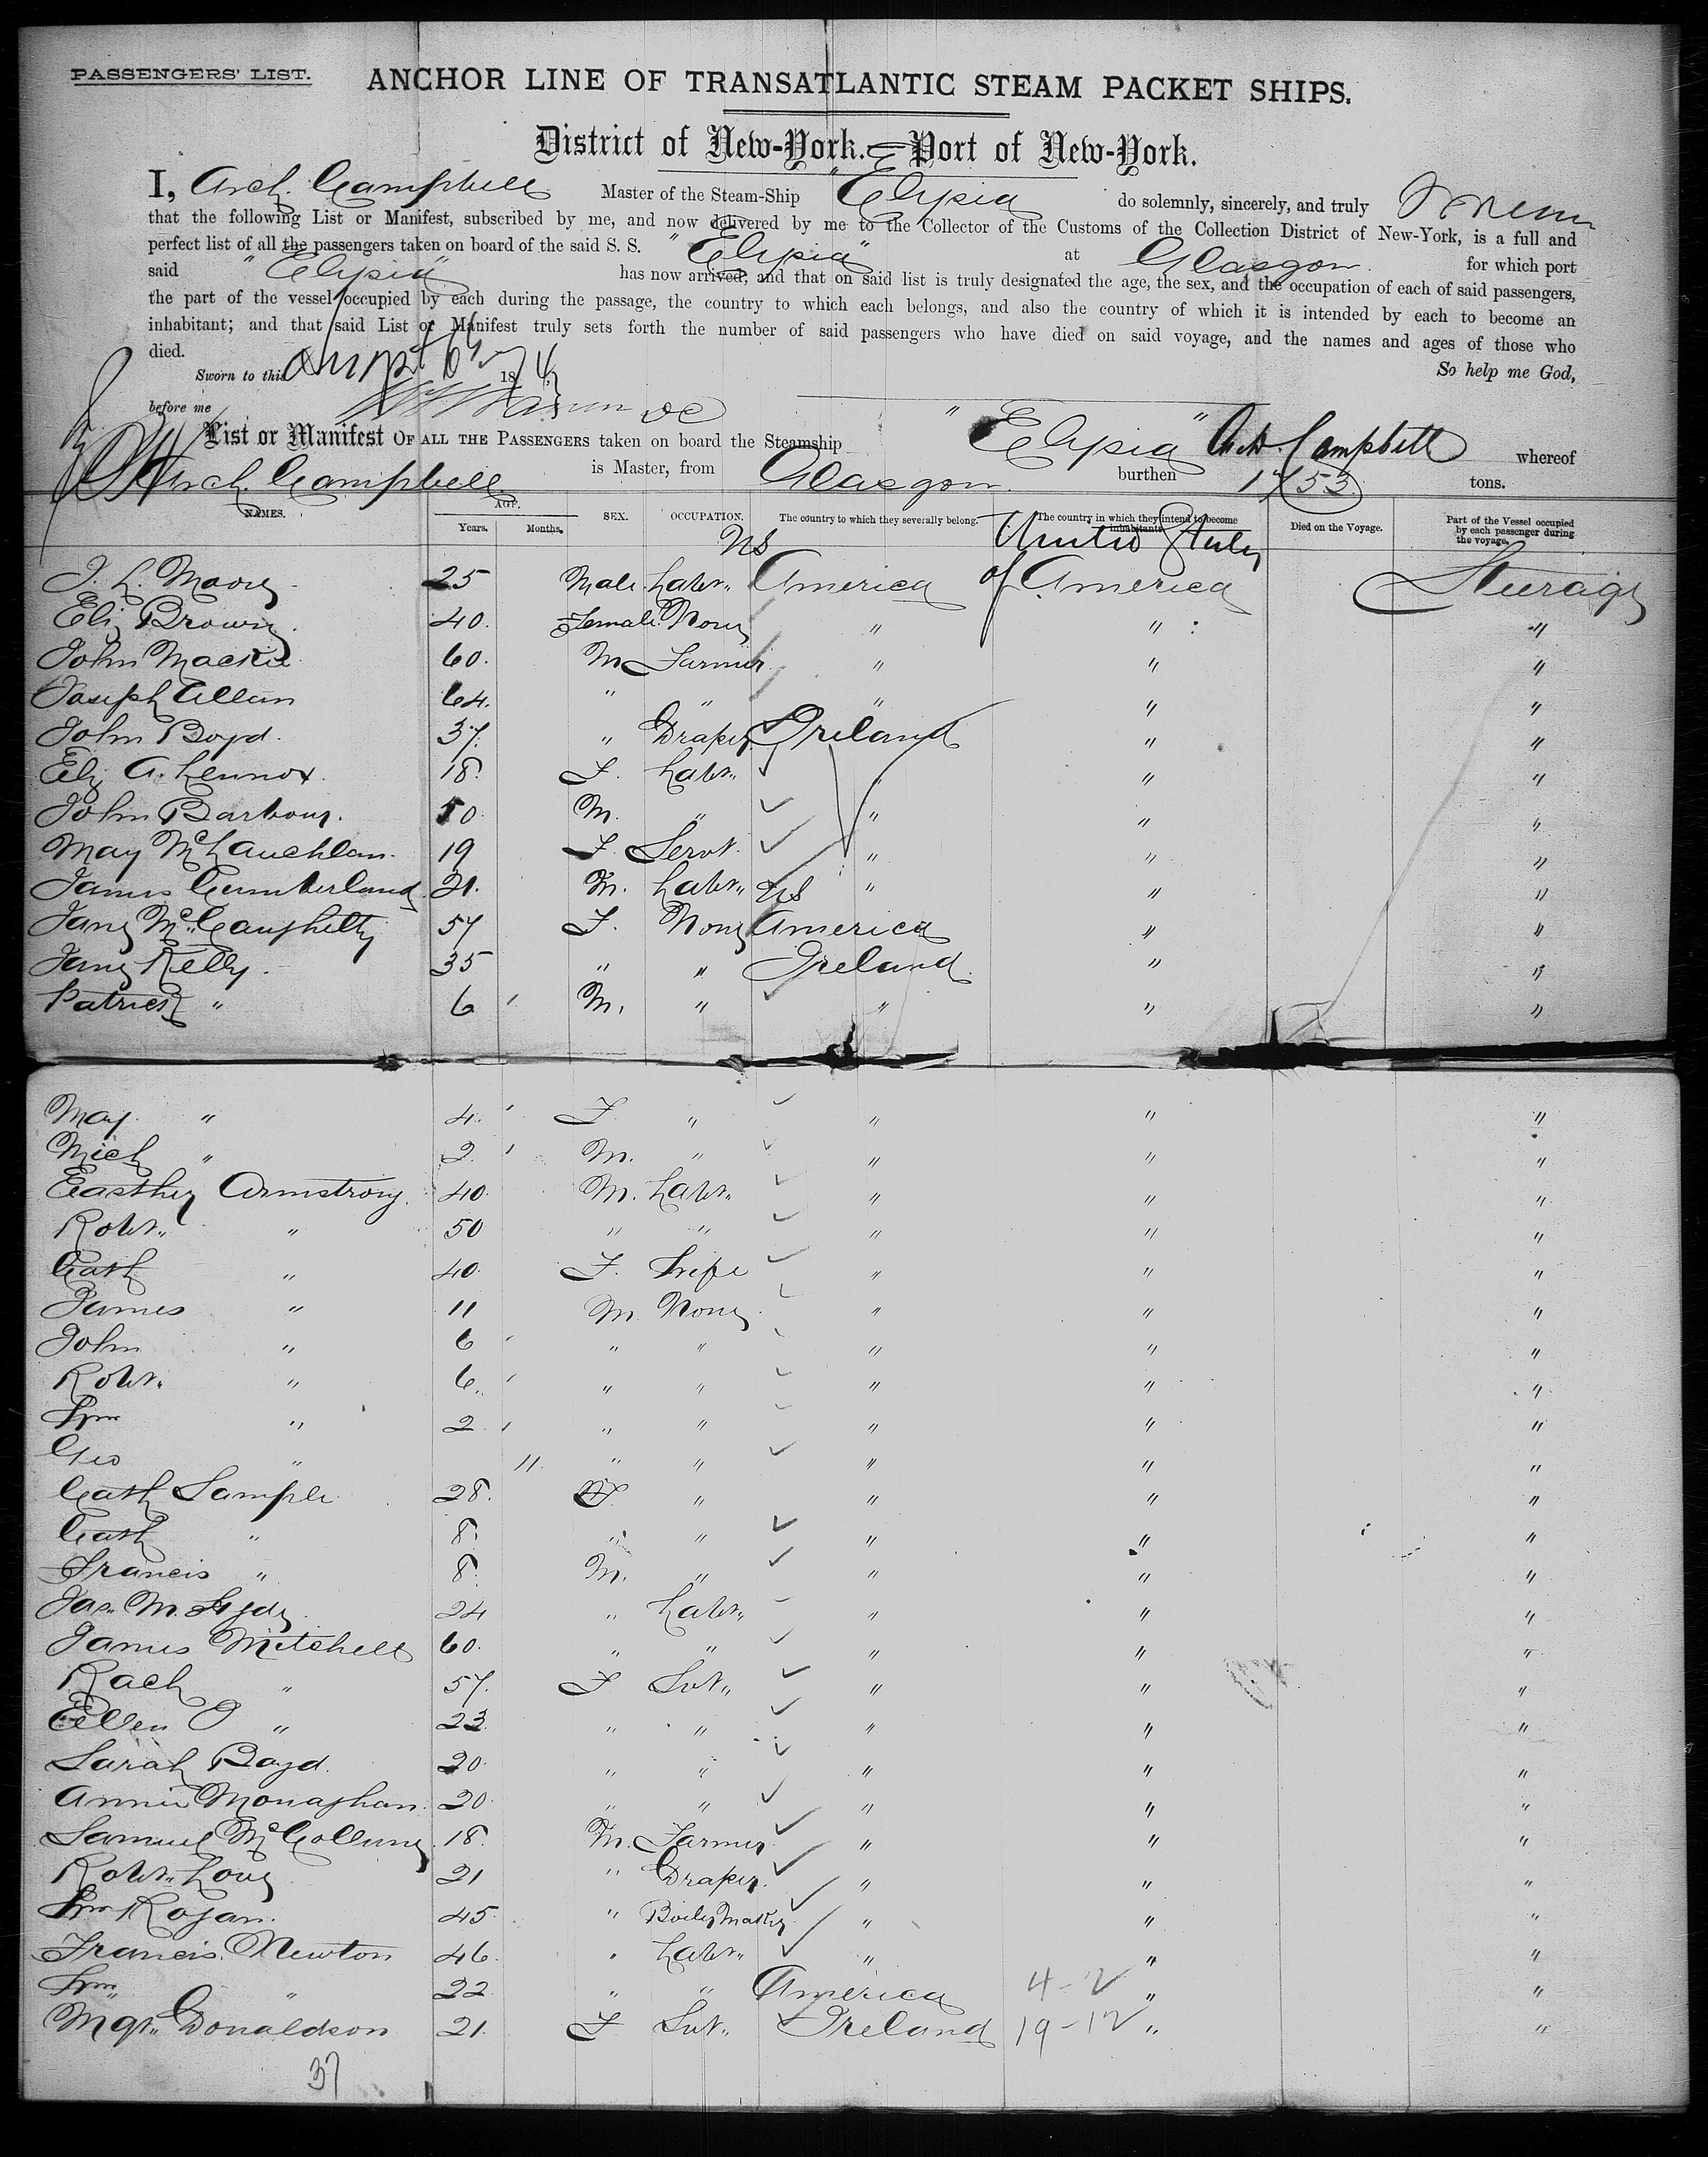 PASSENGERS' LIST.
ANCHOR LINE OF TRANSATLANTIC STEAM PACKET SHIPS.
District of New-York.—Port of New-York.
I, Arch. Campbell Master of the Steam-Ship "Elysia" do solemnly, sincerely, and truly Swear
that the following List or Manifest, subscribed by me, and now delivered by me to the Collector of the Customs of the Collection District of New-York, is a full and
perfect list of all the passengers taken on board of the said S. S. "Elysia" at Glasgow for which port
said "Elysia" has now arrived; and that on said list is truly designated the age, the sex, and the occupation of each of said passengers,
the part of the vessel occupied by each during the passage, the country to which each belongs, and also the country of which it is intended by each to become an
inhabitant; and that said List or Manifest truly sets forth the number of said passengers who have died on said voyage, and the names and ages of those who
died.
So help me God,
Sworn to this 1874
before me
Arch. Campbell
List or Manifest OF ALL THE PASSENGERS taken on board the Steamship "Elysia" whereof
Arch. Campbell is Master, from Glasgow burthen 1753 tons.
NAMES. AGE. Years. Months. SEX. OCCUPATION. The country to which they severally belong. The country in which they intend to become inhabitants. Died on the Voyage. Part of the Vessel occupied by each passenger during the voyage.
US United States
J. L. Moore 25 Male Labr. America of America Steerage
Eliz Brown 40. Female None " " "
John Mackie 60. M Farmer " " "
Joseph Allen 64. " " " " "
John Boyd. 37. " Draper Ireland " "
Eliz A. Lennox. 18. F. Labr. " " "
John Barbour. 50. M. " " " "
May McLauchlan. 19 F. Servt. " " "
James Cumberland 21. M. Labr. " " "
US
Jane McCaughelty 57 F. None America " "
Jane Kelly. 35 " " Ireland. " "
Patrick " 6 M. " " " "
May. " 4. F. " " " "
Mich " 2. M. " " " "
Easther Armstrong. 40. M. Labr. " " "
Robr. " 50 " " " " "
Cath " 40. F. Wife " " "
James " 11 M. None " " "
John " 6 " " " " "
Robr. " 6. " " " " "
Wm " 2. " " " " "
Geo " 11. " " " " "
Cath Sample 28. F. " " " "
Cath " 8. " " " " "
Francis " 8. M. " " " "
Jas. 24 " Labr. " " "
James Mitchell 60. " " " " "
Rach " 57. F Svt. " " "
Ellen J " 23. " " " " "
Sarah Boyd. 20. " " " " "
Annie Monaghan. 20. " " " " "
Samuel McCollum 18. M. Farmer. " " "
Robr. Long 21 " Draper. " " "
Wm Kogan. 45. " Boiler Maker " " "
Francis. Newton 46. " Labr. " " "
Wm. " 22 " " America 4-2 " "
Mgt. Donaldson 21. F Svt. Ireland 19-12 " "
37